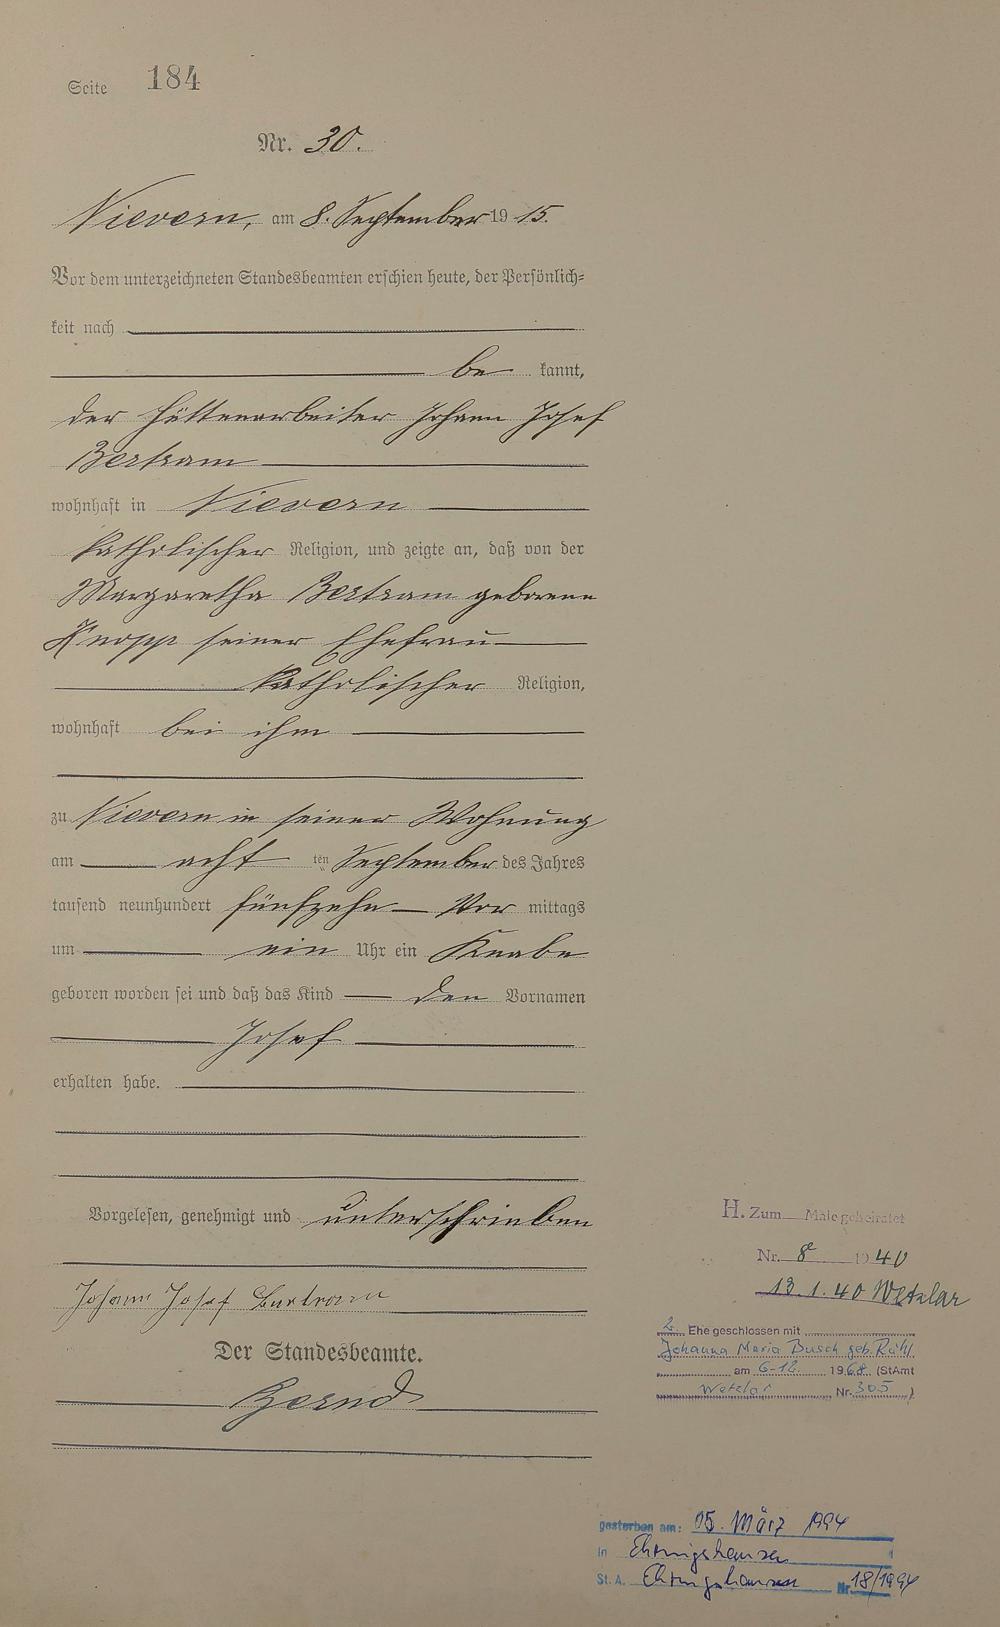 Seite 184
Nr. 30.
Nievern, am 8. September 1915.
Vor dem unterzeichneten Standesbeamten erschien heute, der Persönlich=
keit nach
be kannt,
der Hüttenarbeiter Johann Josef
Bertram
wohnhaft in Nievern
katholischer Religion, und zeigte an, daß von der
Margaretha Bertram geborene
Knopp seiner Ehefrau
katholischer Religion,
wohnhaft bei ihm
zu Nievern in seiner Wohnung
am acht ten September des Jahres
tausend neunhundert fünfzehn Vor mittags
um ein Uhr ein Knabe
geboren worden sei und daß das Kind den Vornamen
Josef
erhalten habe.
Vorgelesen, genehmigt und unterschrieben
Johann Josef Bertram
Der Standesbeamte.
Bernd
H. Zum Male geheiratet
Nr. 8 1940
13.1.40 Wetzlar
2. Ehe geschlossen mit
Johanna Maria Busch geb. Rühl
am 6-12. 1968 (StAmt
Wetzlar Nr. 305)
gestorben am: 05. März 1994
in Ehringshausen
St. A. Ehringshausen Nr. 18/1994